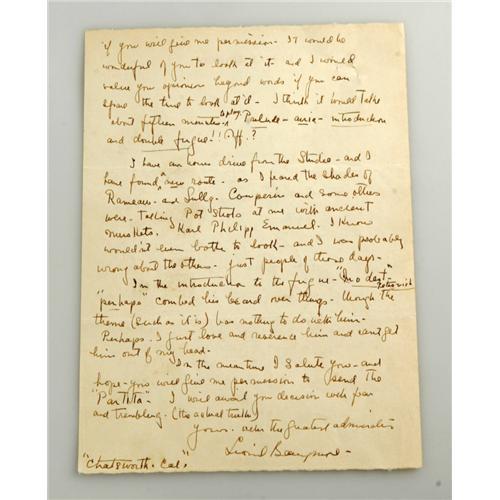 if you will give me permission. It would be
wonderful of you to look at it and I would
value your opinion beyond words if you can
spare the time to look at it - I think it would take
about fifteen minutes to play. Prelude - aria - introduction
and double fugue!! Off?
I have an hours drive from the Studio - and I
have found new route - as I feared the shades of
Rameau - and Lully. Couperin and some others
were - taking Pot Shots at me with ancient
muskets. Karl Philipp Emanuel. I know
wouldn't even bother to look - and I was probably
wrong about the others - just people of those days -
In the introduction to the fugue - "Modest Petrovich
"perhaps" combed his beard over things - though the
theme (such as it is) has nothing to do with him -
Perhaps. I just love and reverence him and cant get
him out of my head.
In the meantime I salute you - and
hope - you will give me permission to send the
"Partita" - I will await you decision with fear
and trembling. (the actual truth)
Yours. with the greatest admiration
Lionel Barrymore -
"Chatsworth. Cal."